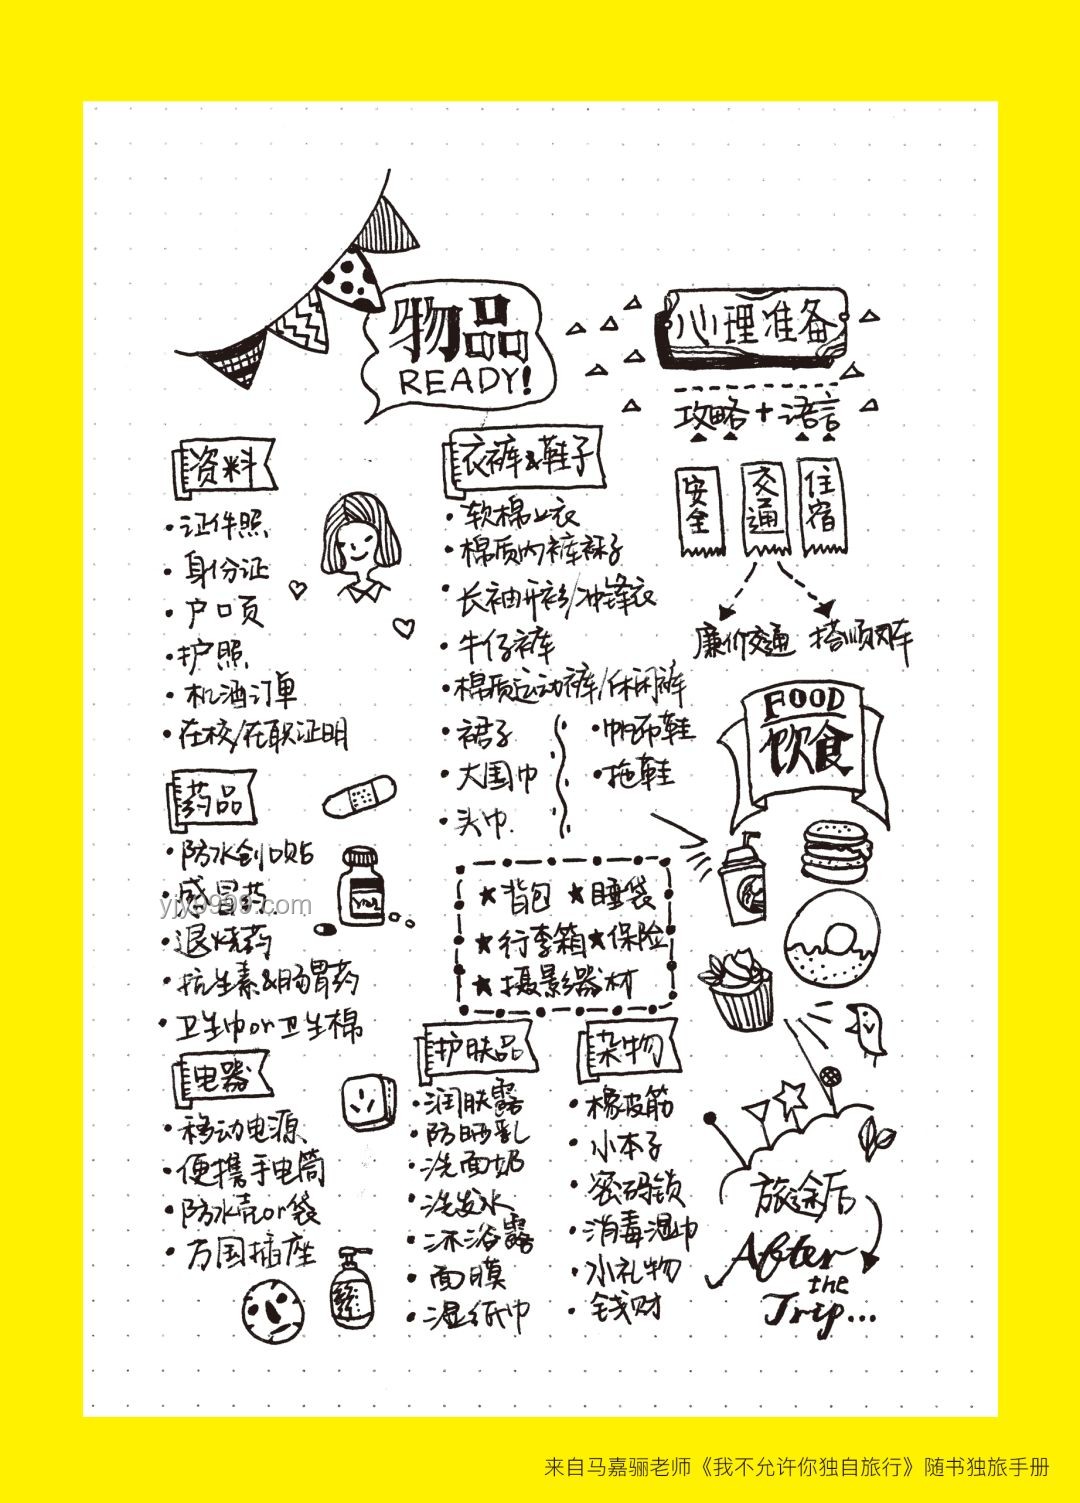 物品
READY!
心理准备
攻略+语言
安全
交通
住宿
廉价交通
搭顺风车
资料
·证件照
·身份证
·户口页
·护照
·机酒订单
·在校/在职证明
药品
·防水创口贴
·感冒药
·退烧药
·抗生素&肠胃药
·卫生巾or卫生棉
电器
·移动电源
·便携手电筒
·防水壳or袋
·万国插座
衣裤&鞋子
·软棉上衣
·棉质内裤袜子
·长袖开衫/冲锋衣
·牛仔裤
·棉质运动裤/休闲裤
·裙子
·大围巾
·头巾
·帆布鞋
·拖鞋
★背包 ★睡袋
★行李箱★保险
★摄影器材
护肤品
·润肤露
·防晒乳
·洗面奶
·洗发水
·沐浴露
·面膜
·湿纸巾
杂物
·橡皮筋
·小本子
·密码锁
·消毒湿巾
·小礼物
·钱财
FOOD
饮食
旅途后
After
the
Trip...
yjys999.com
来自马嘉骊老师《我不允许你独自旅行》随书独旅手册